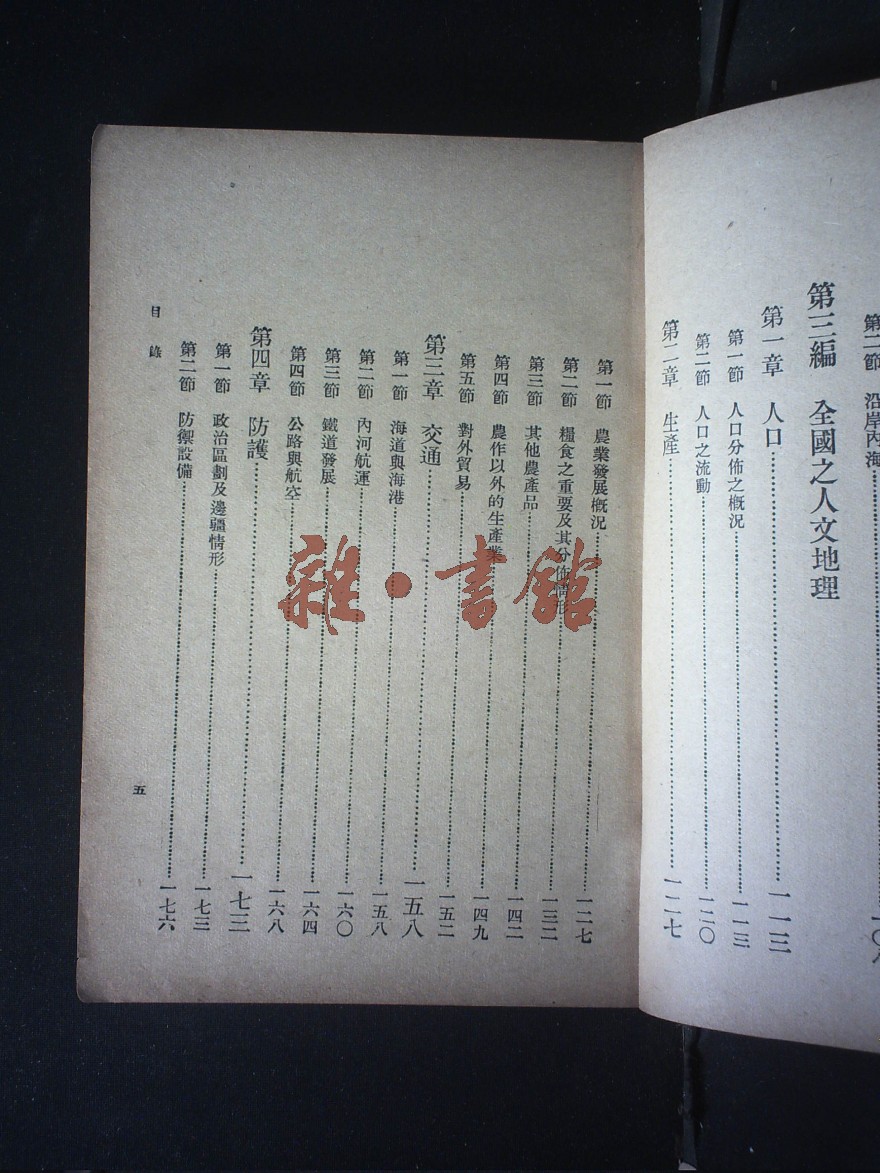 第二節　沿岸內海
第三編　全國之人文地理
第一章　人口……一一三
第一節　人口分佈之概況……一一三
第二節　人口之流動……一二〇
第二章　生產……一二七
第一節　農業發展概況……一二七
第二節　糧食之重要及其分佈情形……一三二
第三節　其他農產品……一四二
第四節　農作以外的生產業……一四九
第五節　對外貿易……一五二
第三章　交通……一五八
第一節　海道與海港……一五八
第二節　內河航運……一六〇
第三節　鐵道發展……一六四
第四節　公路與航空……一六八
第四章　防護……一七三
第一節　政治區劃及邊疆情形……一七三
第二節　防禦設備……一七六
目錄
五
雜·書館